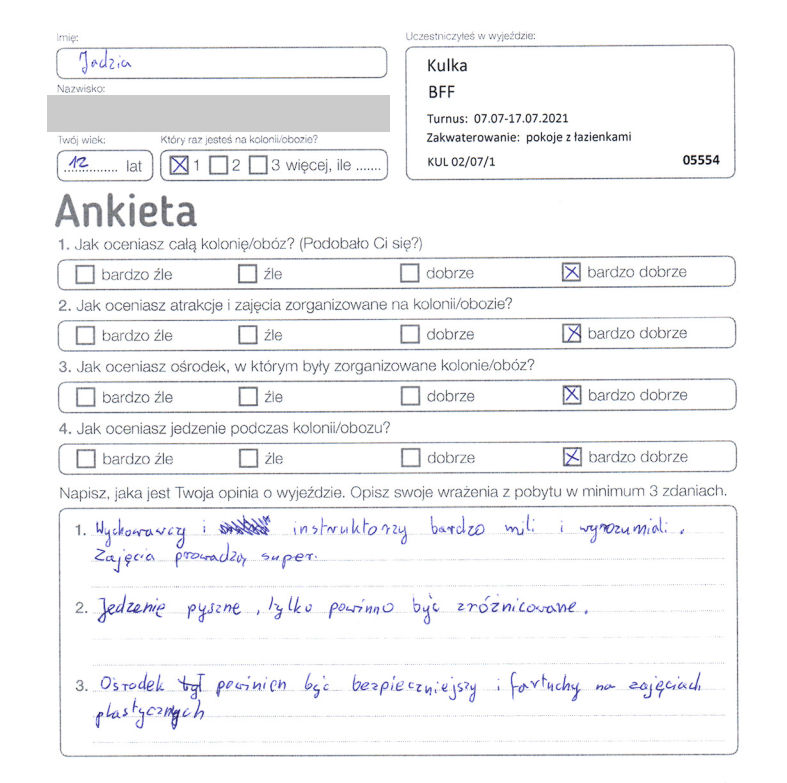 Imię:
Jadzia
Nazwisko:
Twój wiek:
12 lat
Który raz jesteś na kolonii/obozie?
1 2 3 więcej, ile .......
Uczestniczyłeś w wyjeździe:
Kulka
BFF
Turnus: 07.07-17.07.2021
Zakwaterowanie: pokoje z łazienkami
KUL 02/07/1 05554
Ankieta
1. Jak oceniasz całą kolonię/obóz? (Podobało Ci się?)
bardzo źle źle dobrze bardzo dobrze
2. Jak oceniasz atrakcje i zajęcia zorganizowane na kolonii/obozie?
bardzo źle źle dobrze bardzo dobrze
3. Jak oceniasz ośrodek, w którym były zorganizowane kolonie/obóz?
bardzo źle źle dobrze bardzo dobrze
4. Jak oceniasz jedzenie podczas kolonii/obozu?
bardzo źle źle dobrze bardzo dobrze
Napisz, jaka jest Twoja opinia o wyjeździe. Opisz swoje wrażenia z pobytu w minimum 3 zdaniach.
1. Wychowawczy i instruktorzy bardzo mili i wyrozumiali.
Zajęcia prowadzą super.
2. Jedzenię pyszne, tylko powinno być zróżnicowane.
3. Ośrodek był powinien być bezpieczniejszy i fartuchy na zajęciach
plastycznych